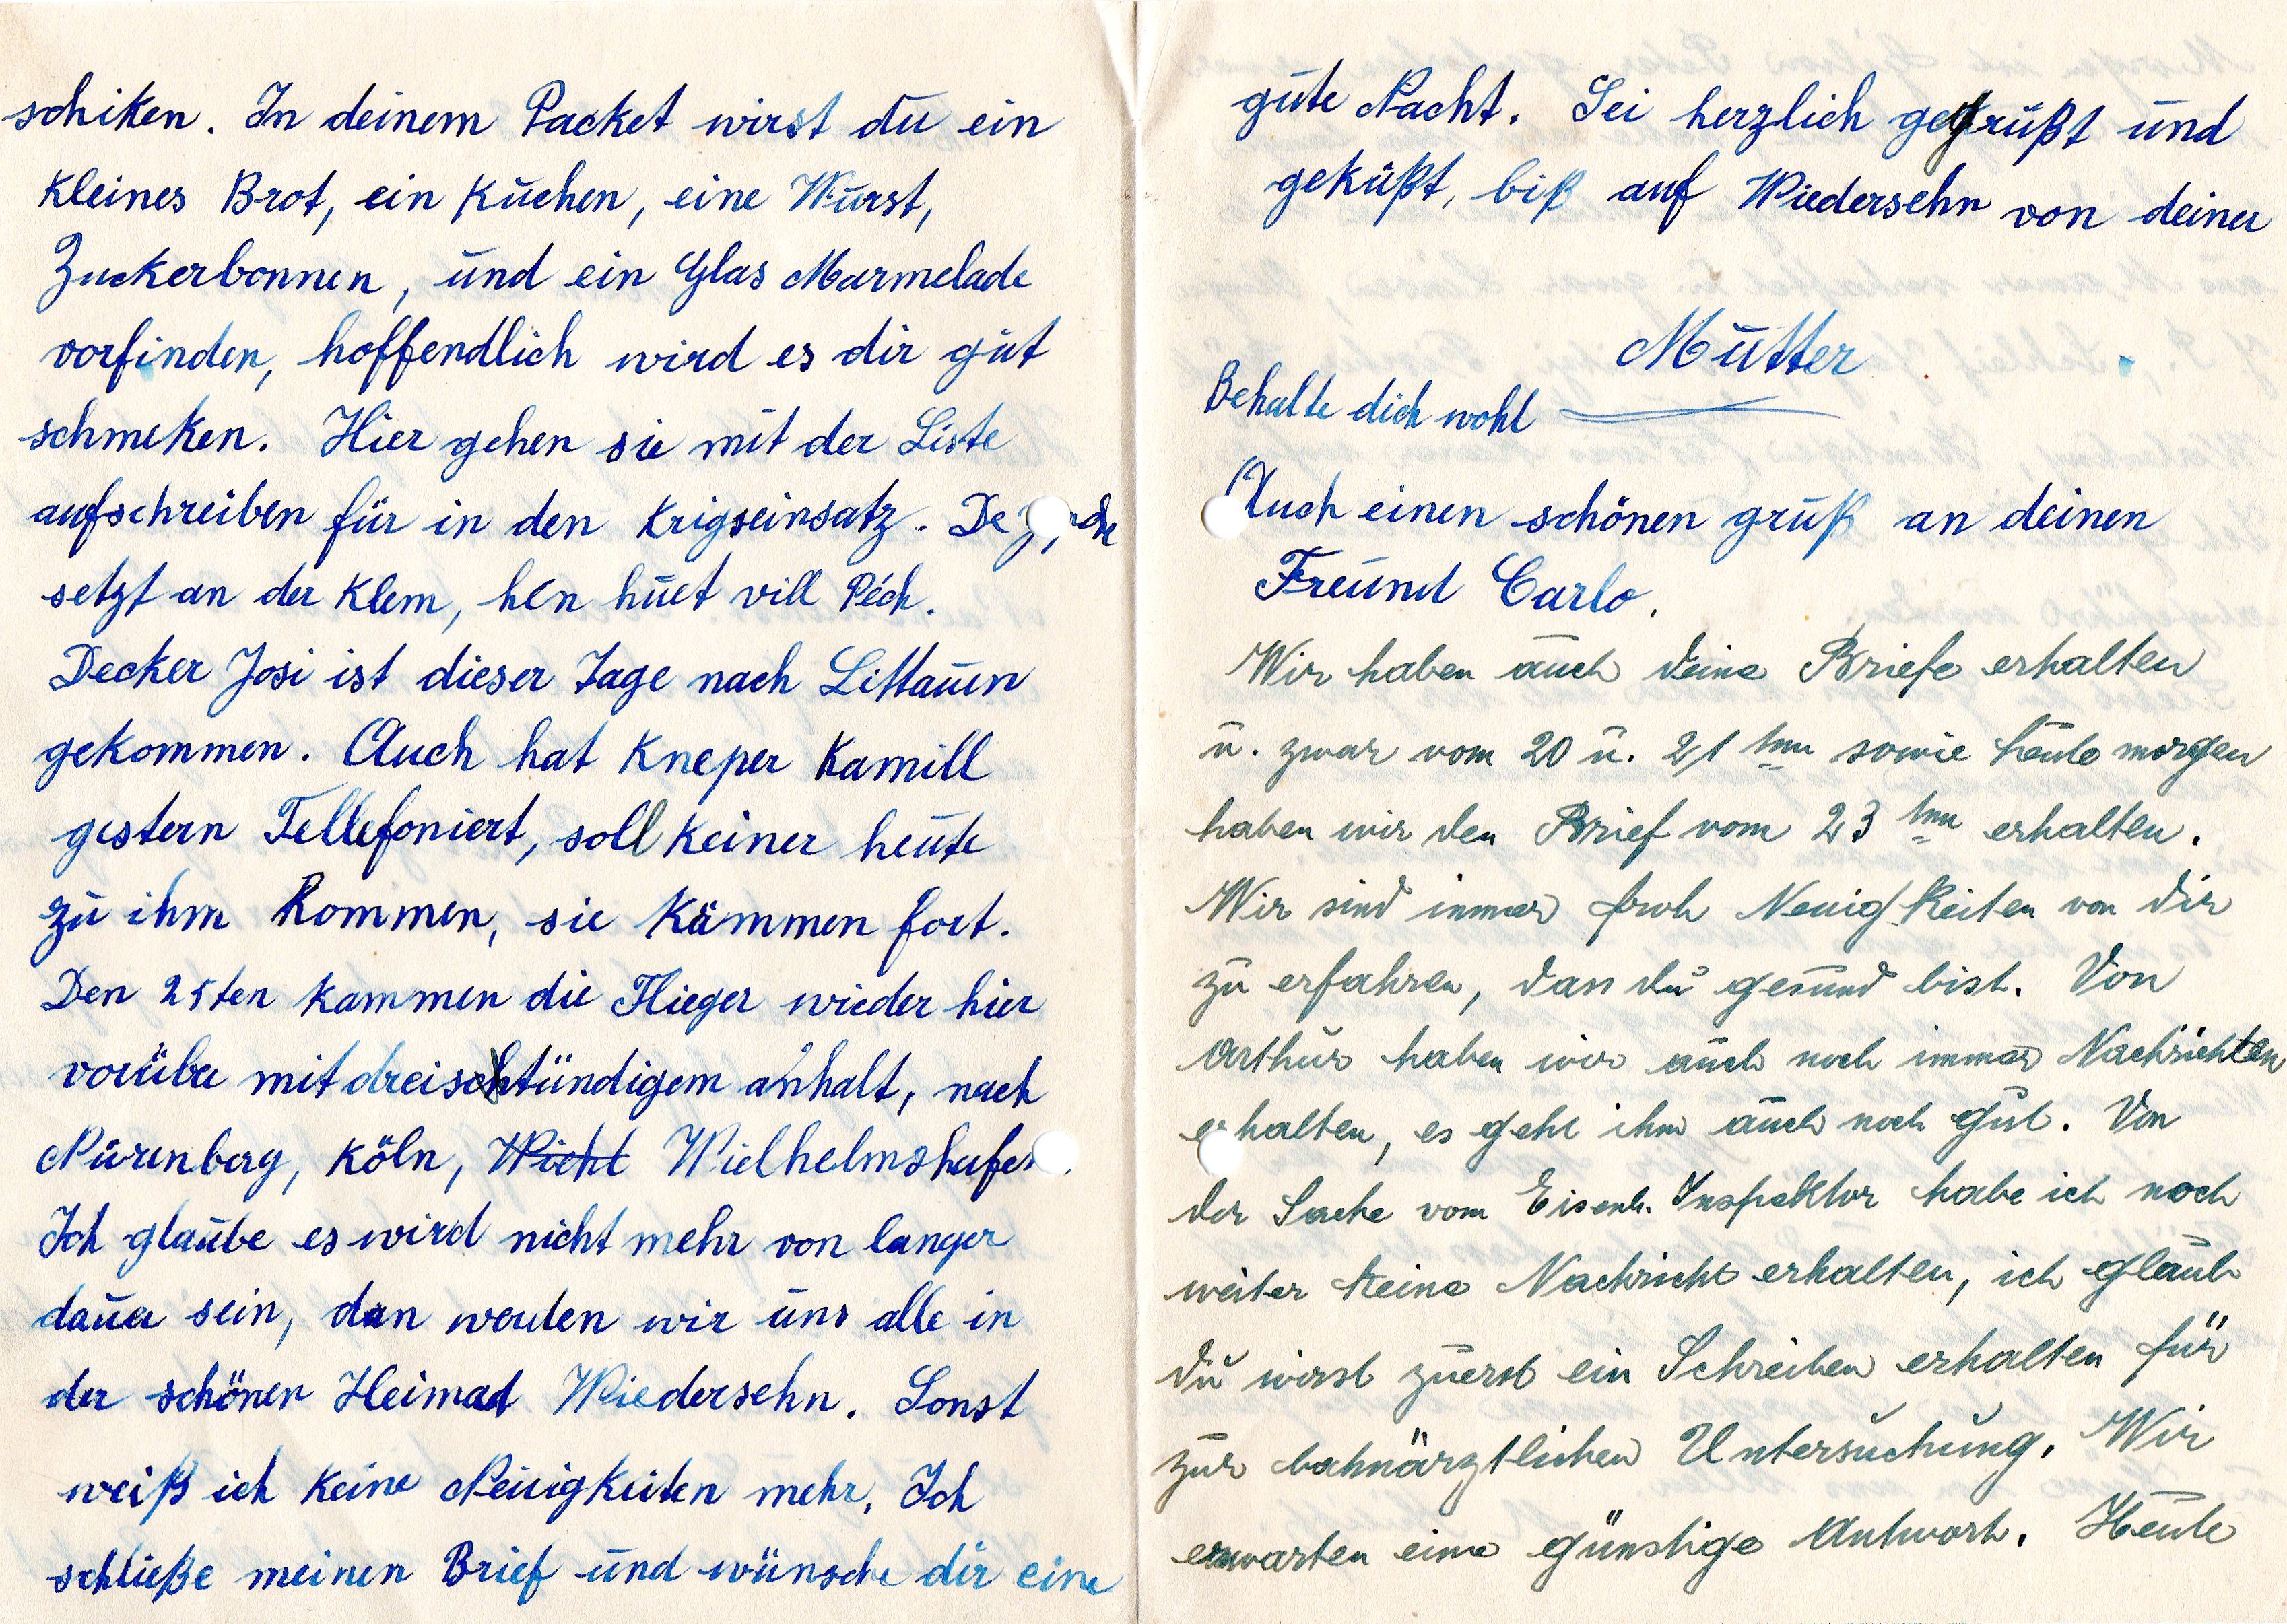 schiken. In deinem Packet wirst du ein
kleines Brot, ein Kuchen, eine Wurst,
Zuckerbonnen, und ein Glas Marmelade
vorfinden, hoffendlich wird es dir gut
schmeken. Hier gehen sie mit der Liste
aufschreiben für in den Krigseinsatz. De
setzt an der Klem, hen huet vill Péch.
Decker Josi ist dieser Tage nach Littauen
gekommen. Auch hat Kneper Kamill
gestern Tellefoniert, soll keiner heute
zu ihm kommen, sie kämmen fort.
Den 25ten kammen die Flieger wieder hier
vorüber mit dreistündigem anhalt, nach
Nürenberg, Köln, Wicht Wielhelmshafen.
Ich glaube es wird nicht mehr von langer
dauer sein, dan werden wir uns alle in
der schönen Heimad Wiedersehn. Sonst
weiß ich keine Neuigkeiten mehr. Ich
schließe meinen Brief und wünsche dir eine
gute Nacht. Sei herzlich gegrüßt und
geküßt, biß auf Wiedersehn von deiner
Mutter
Behalte dich wohl
Auch einen schönen gruß an deinen
Freund Carlo.
Wir haben auch deine Briefe erhalten
u. zwar vom 20 u. 21 ten sowie heute morgen
haben wir den Brief vom 23 ten erhalten.
Wir sind immer froh Neuigkeiten von dir
zu erfahren, dan du gesund bist. Von
Arthur haben wir auch noch immer Nachrichten
erhalten, es geht ihm auch noch gut. Von
der Sache vom Eisenb. Inspektor habe ich noch
weiter keine Nachricht erhalten, ich glaub
du wirst zuerst ein Schreiben erhalten für
zur bahnärztlichen Untersuchung. Wir
erwarten eine günstige Antwort. Heute